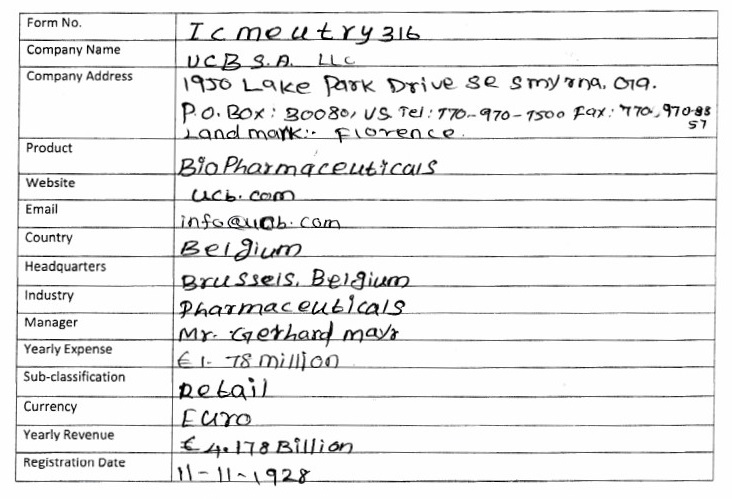 Form No. Icmeutry316
Company Name UCB S.A. LLC
Company Address 1950 Lake Park Drive SE Smyrna, GA.
P.O. Box: 30080, US Tel: 770-970-7500 Fax: 770-970-88
57
Landmark:- Florence.
Product BioPharmaceuticals
Website ucb.com
Email info@ucb.com
Country Belgium
Headquarters Brussels, Belgium
Industry Pharmaceuticals
Manager Mr. Gerhard mayr
Yearly Expense €1.78 million
Sub-classification Retail
Currency Euro
Yearly Revenue €4.178 Billion
Registration Date 11-11-1928